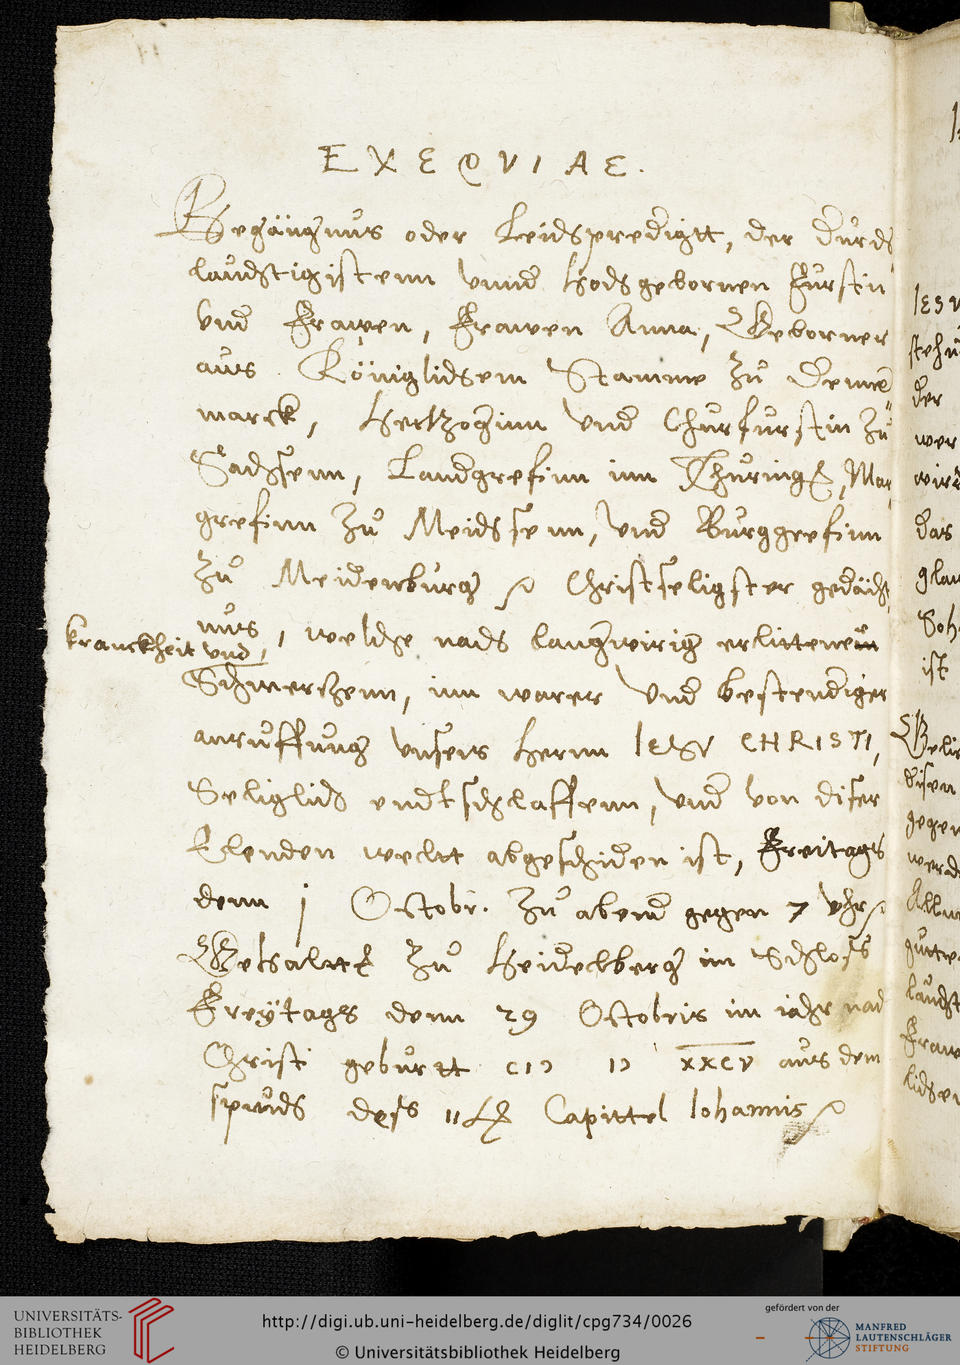 EXEQVIAE.
Begängnus oder Leidspredigtt, der Durch
lauchtigistenn vnnd Hochgebornen Fürstin
vnd Frawen, Frawen Anna, Geborner
aus Königlichem Stamme zu Denne
marck, Hertzoginn vnd Churfürstin zu
Sachsenn, Landgrefinn inn Thüring, Mar
grefinn zu Meichssenn, vnd Burggrefinn
zu Meidenburg Christseligster gedächt
nus, welche nach langwirig erlittenem
kranckheit vnd,
Schmertzenn, inn warer vnd bestendiger
anruffung vnsers Hernn IESV CHRISTI,
Seliglich endtschlaffenn, vnd von diser
Elenden weltt abgescheiden ist, Freitags
denn 1 Octobr. zu abend gegen 7 vhr
Gehaltt zu Heidelberg im Schloss
Freÿtags denn 29 Octobris im iahr nach
Christi geburtt CIƆ IƆ XXCV aus dem
spruch dess 11 Capittel Iohannis
IESV
der
wer
wird
das
glau
Soh
ist
disen
gegen
UNIVERSITÄTS-
BIBLIOTHEK
HEIDELBERG
http://digi.ub.uni-heidelberg.de/diglit/cpg734/0026
© Universitätsbibliothek Heidelberg
gefördert von der
MANFRED
LAUTENSCHLÄGER
STIFTUNG